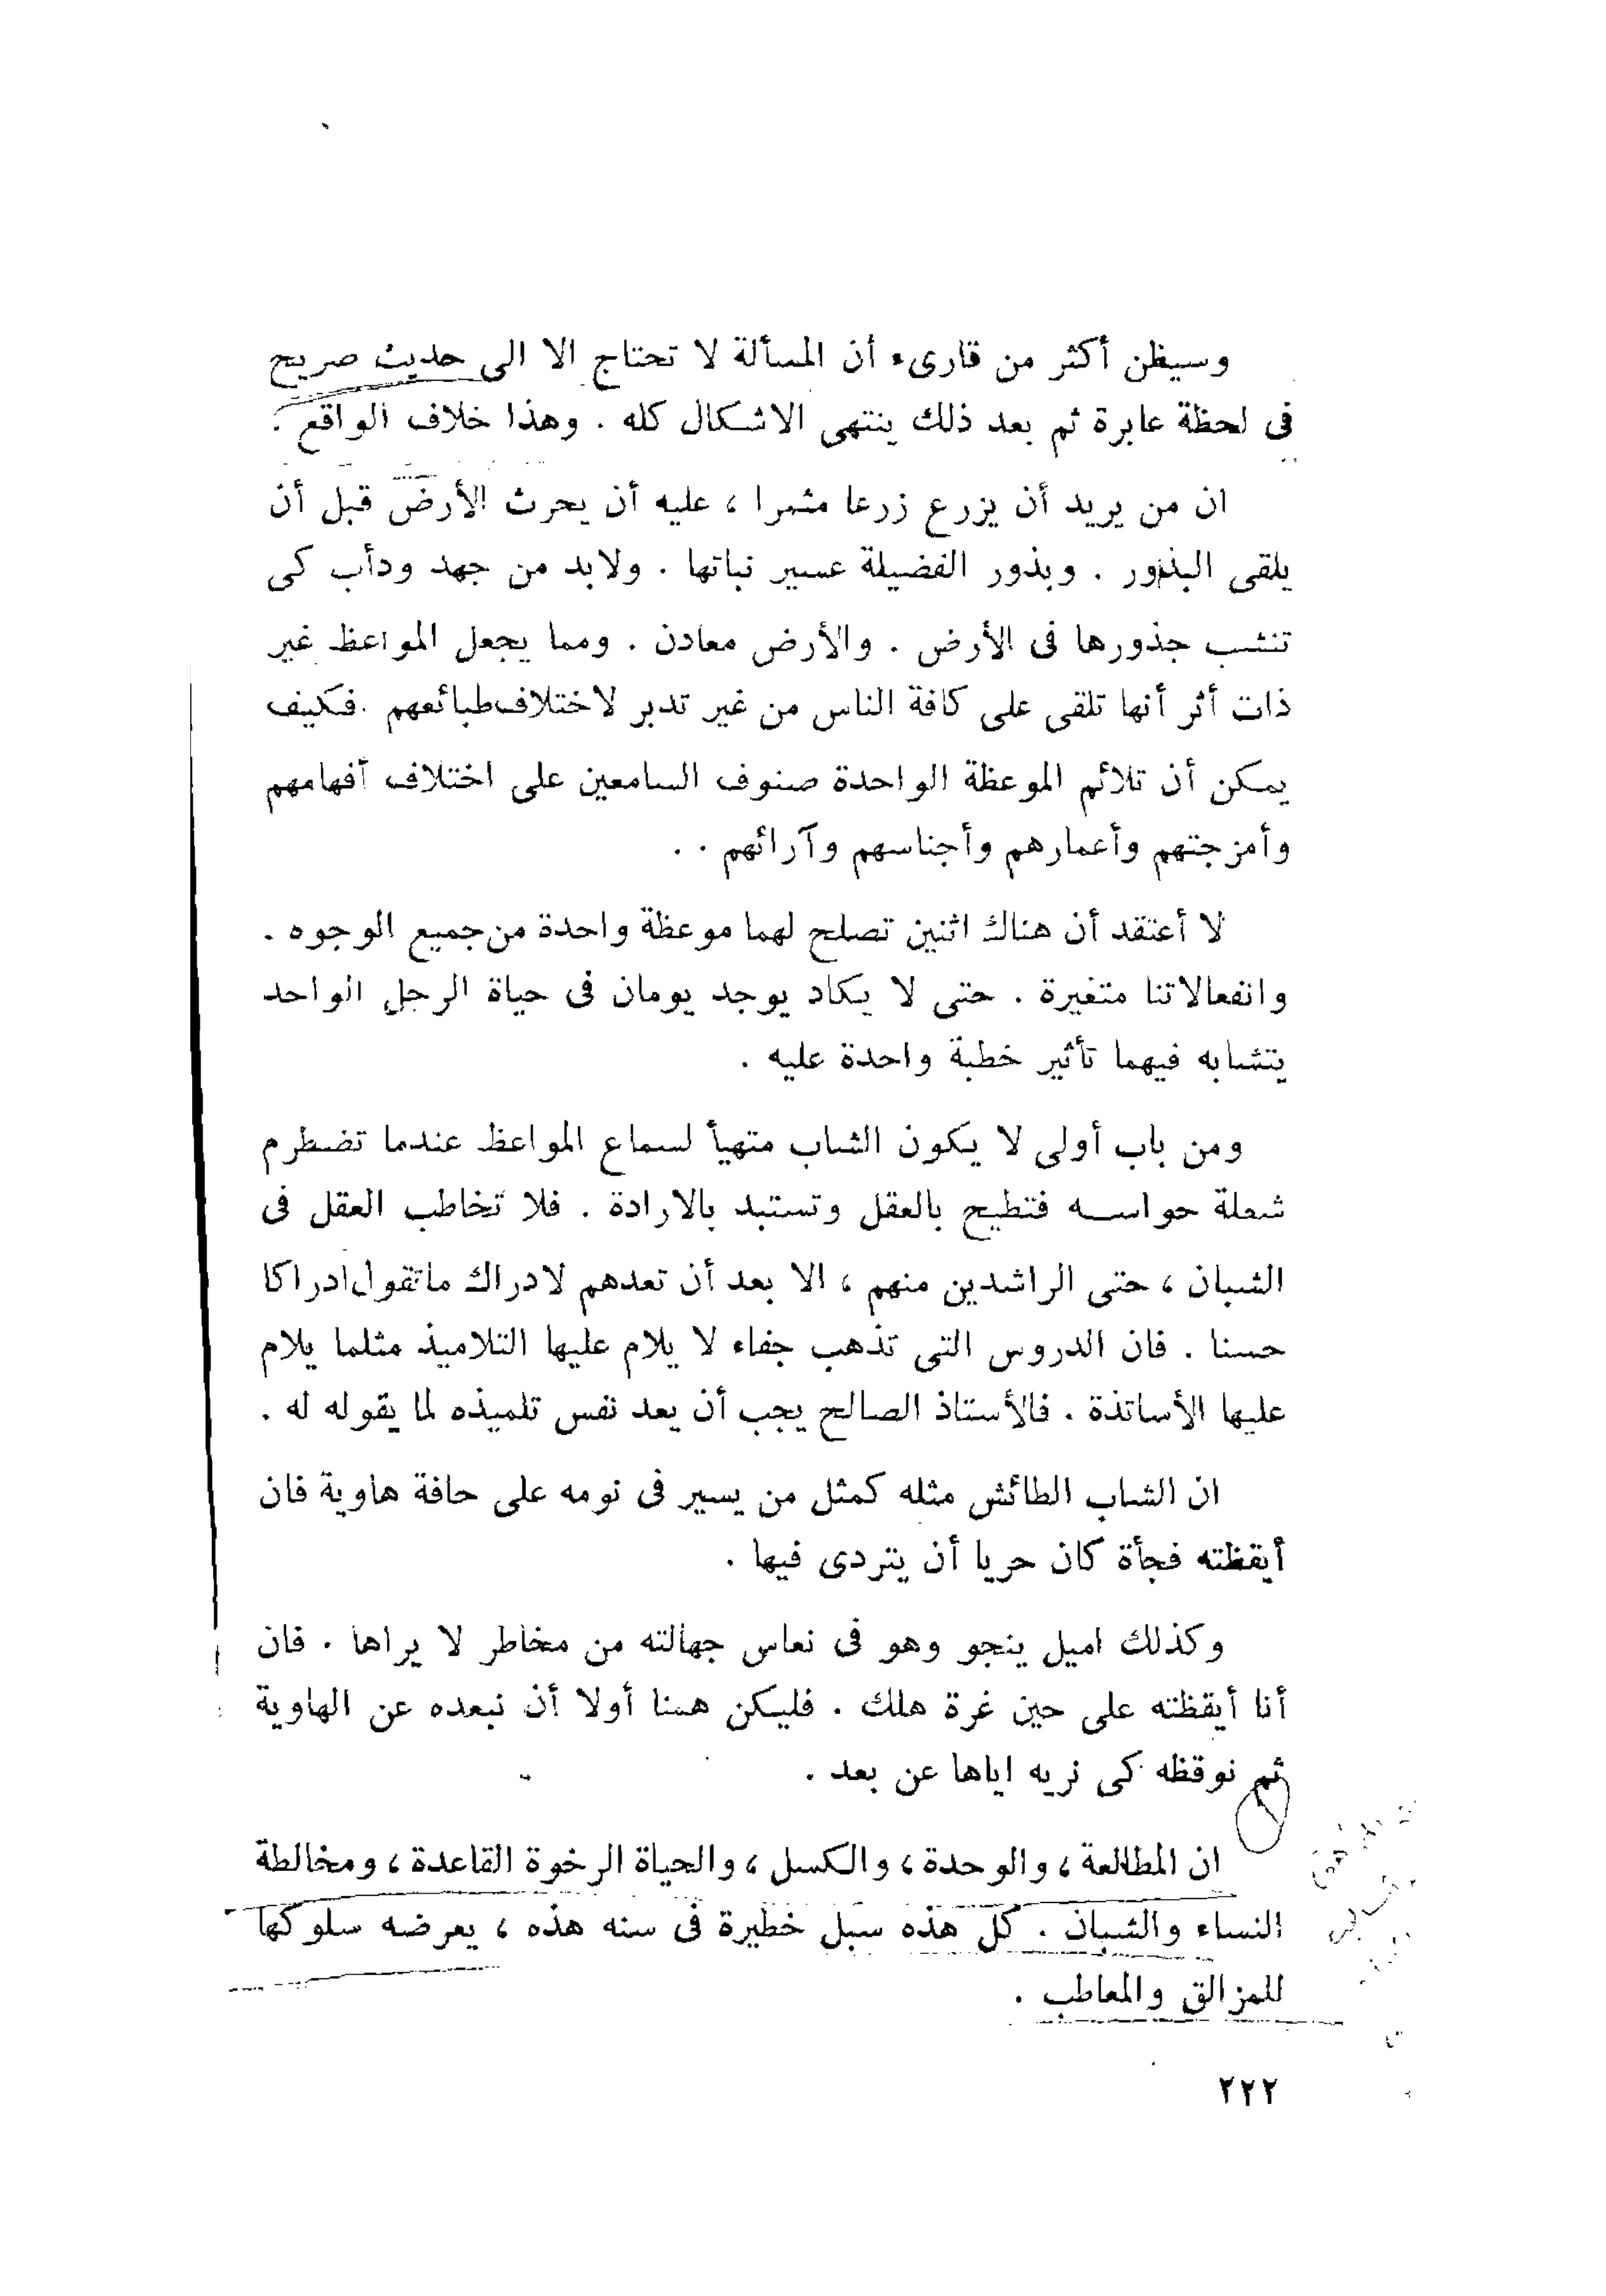 وسيظن أكثر من قارىء أن المسألة لا تحتاج الا الى حديث صريح
فى لحظة عابرة ثم بعد ذلك ينتهى الاشكال كله . وهذا خلاف الواقع .
ان من يريد أن يزرع زرعا مثمرا ، عليه أن يحرث الأرض قبل أن
يلقى البذور . وبذور الفضيلة عسير نباتها . ولابد من جهد ودأب كى
تنشب جذورها فى الأرض . والأرض معادن . ومما يجعل المواعظ غير
ذات أثر أنها تلقى على كافة الناس من غير تدبر لاختلاف طبائعهم . فكيف
يمكن أن تلائم الموعظة الواحدة صنوف السامعين على اختلاف أفهامهم
وأمزجتهم وأعمارهم وأجناسهم وآرائهم . .
لا أعتقد أن هناك اثنين تصلح لهما موعظة واحدة من جميع الوجوه .
وانفعالاتنا متغيرة . حتى لا يكاد يوجد يومان فى حياة الرجل الواحد
يتشابه فيهما تأثير خطبة واحدة عليه .
ومن باب أولى لا يكون الشاب متهيأ لسماع المواعظ عندما تضطرم
شعلة حواسه فتطيح بالعقل وتستبد بالارادة . فلا تخاطب العقل فى
الشبان ، حتى الراشدين منهم ، الا بعد أن تعدهم لادراك ماتقول ادراكا
حسنا . فان الدروس التى تذهب جفاء لا يلام عليها التلاميذ مثلما يلام
عليها الأساتذة . فالأستاذ الصالح يجب أن يعد نفس تلميذه لما يقوله له .
ان الشاب الطائش مثله كمثل من يسير فى نومه على حافة هاوية فان
أيقظته فجأة كان حريا أن يتردى فيها .
وكذلك اميل ينجو وهو فى نعاس جهالته من مخاطر لا يراها . فان
أنا أيقظته على حين غرة هلك . فليكن همنا أولا أن نبعده عن الهاوية
ثم نوقظه كى نريه اياها عن بعد .
ان المطالعة ، والوحدة ، والكسل ، والحياة الرخوة القاعدة ، ومخالطة
النساء والشبان . كل هذه سبل خطيرة فى سنه هذه ، يعرضه سلوكها
للمزالق والمعاطب .
٢٢٢